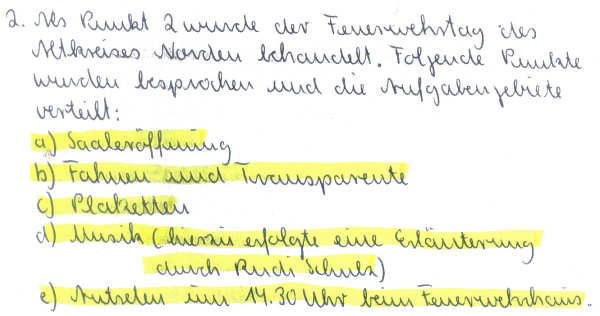 2. Als Punkt 2 wurde der Feuerwehrtag des
Altkreises Norden behandelt. Folgende Punkte
wurden besprochen und die Aufgabengebiete
verteilt:
a) Saaleröffnung
b) Fahnen und Transparente
c) Plaketten
d) Musik (hierzu erfolgte eine Erläuterung
durch Rudi Schulz)
e) Antreten um 14.30 Uhr beim Feuerwehrhaus.